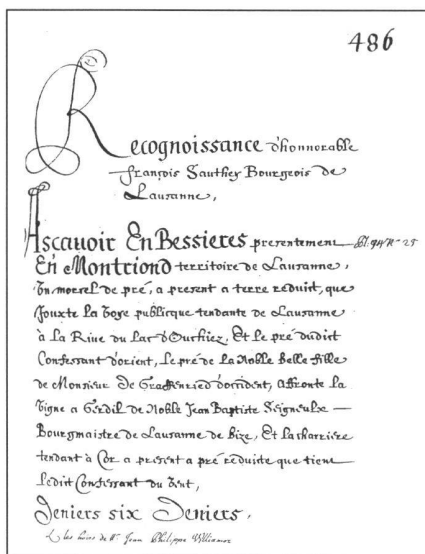 486
Recognoissance d'honnorable
françois Sauthey Bourgeois de
Lausanne,
Ascavoir En Bessieres presentement fol. 94 N° 25
En Montriond territoire de Lausanne,
Un morsel de pré, a present a terre reduit, que
Jouxte la Voye publicque tendante de Lausanne
à la Rive du lac d'Ouchiez, Et le pré dudit
Confessant d'orient, Le pré de la Noble Belle fille
de Monsieur De Graffenried d'occident, affronte la
Vigne a Gerdil de Noble Jean Baptiste Seigneulx
Bourgmaistre de Lausanne de bize, Et la charriere
tendant à Cor a present a pré reduite que tient
Ledit Confessant du Vent,
Deniers six Deniers,
les hoirs de Mr. Jean Philippe